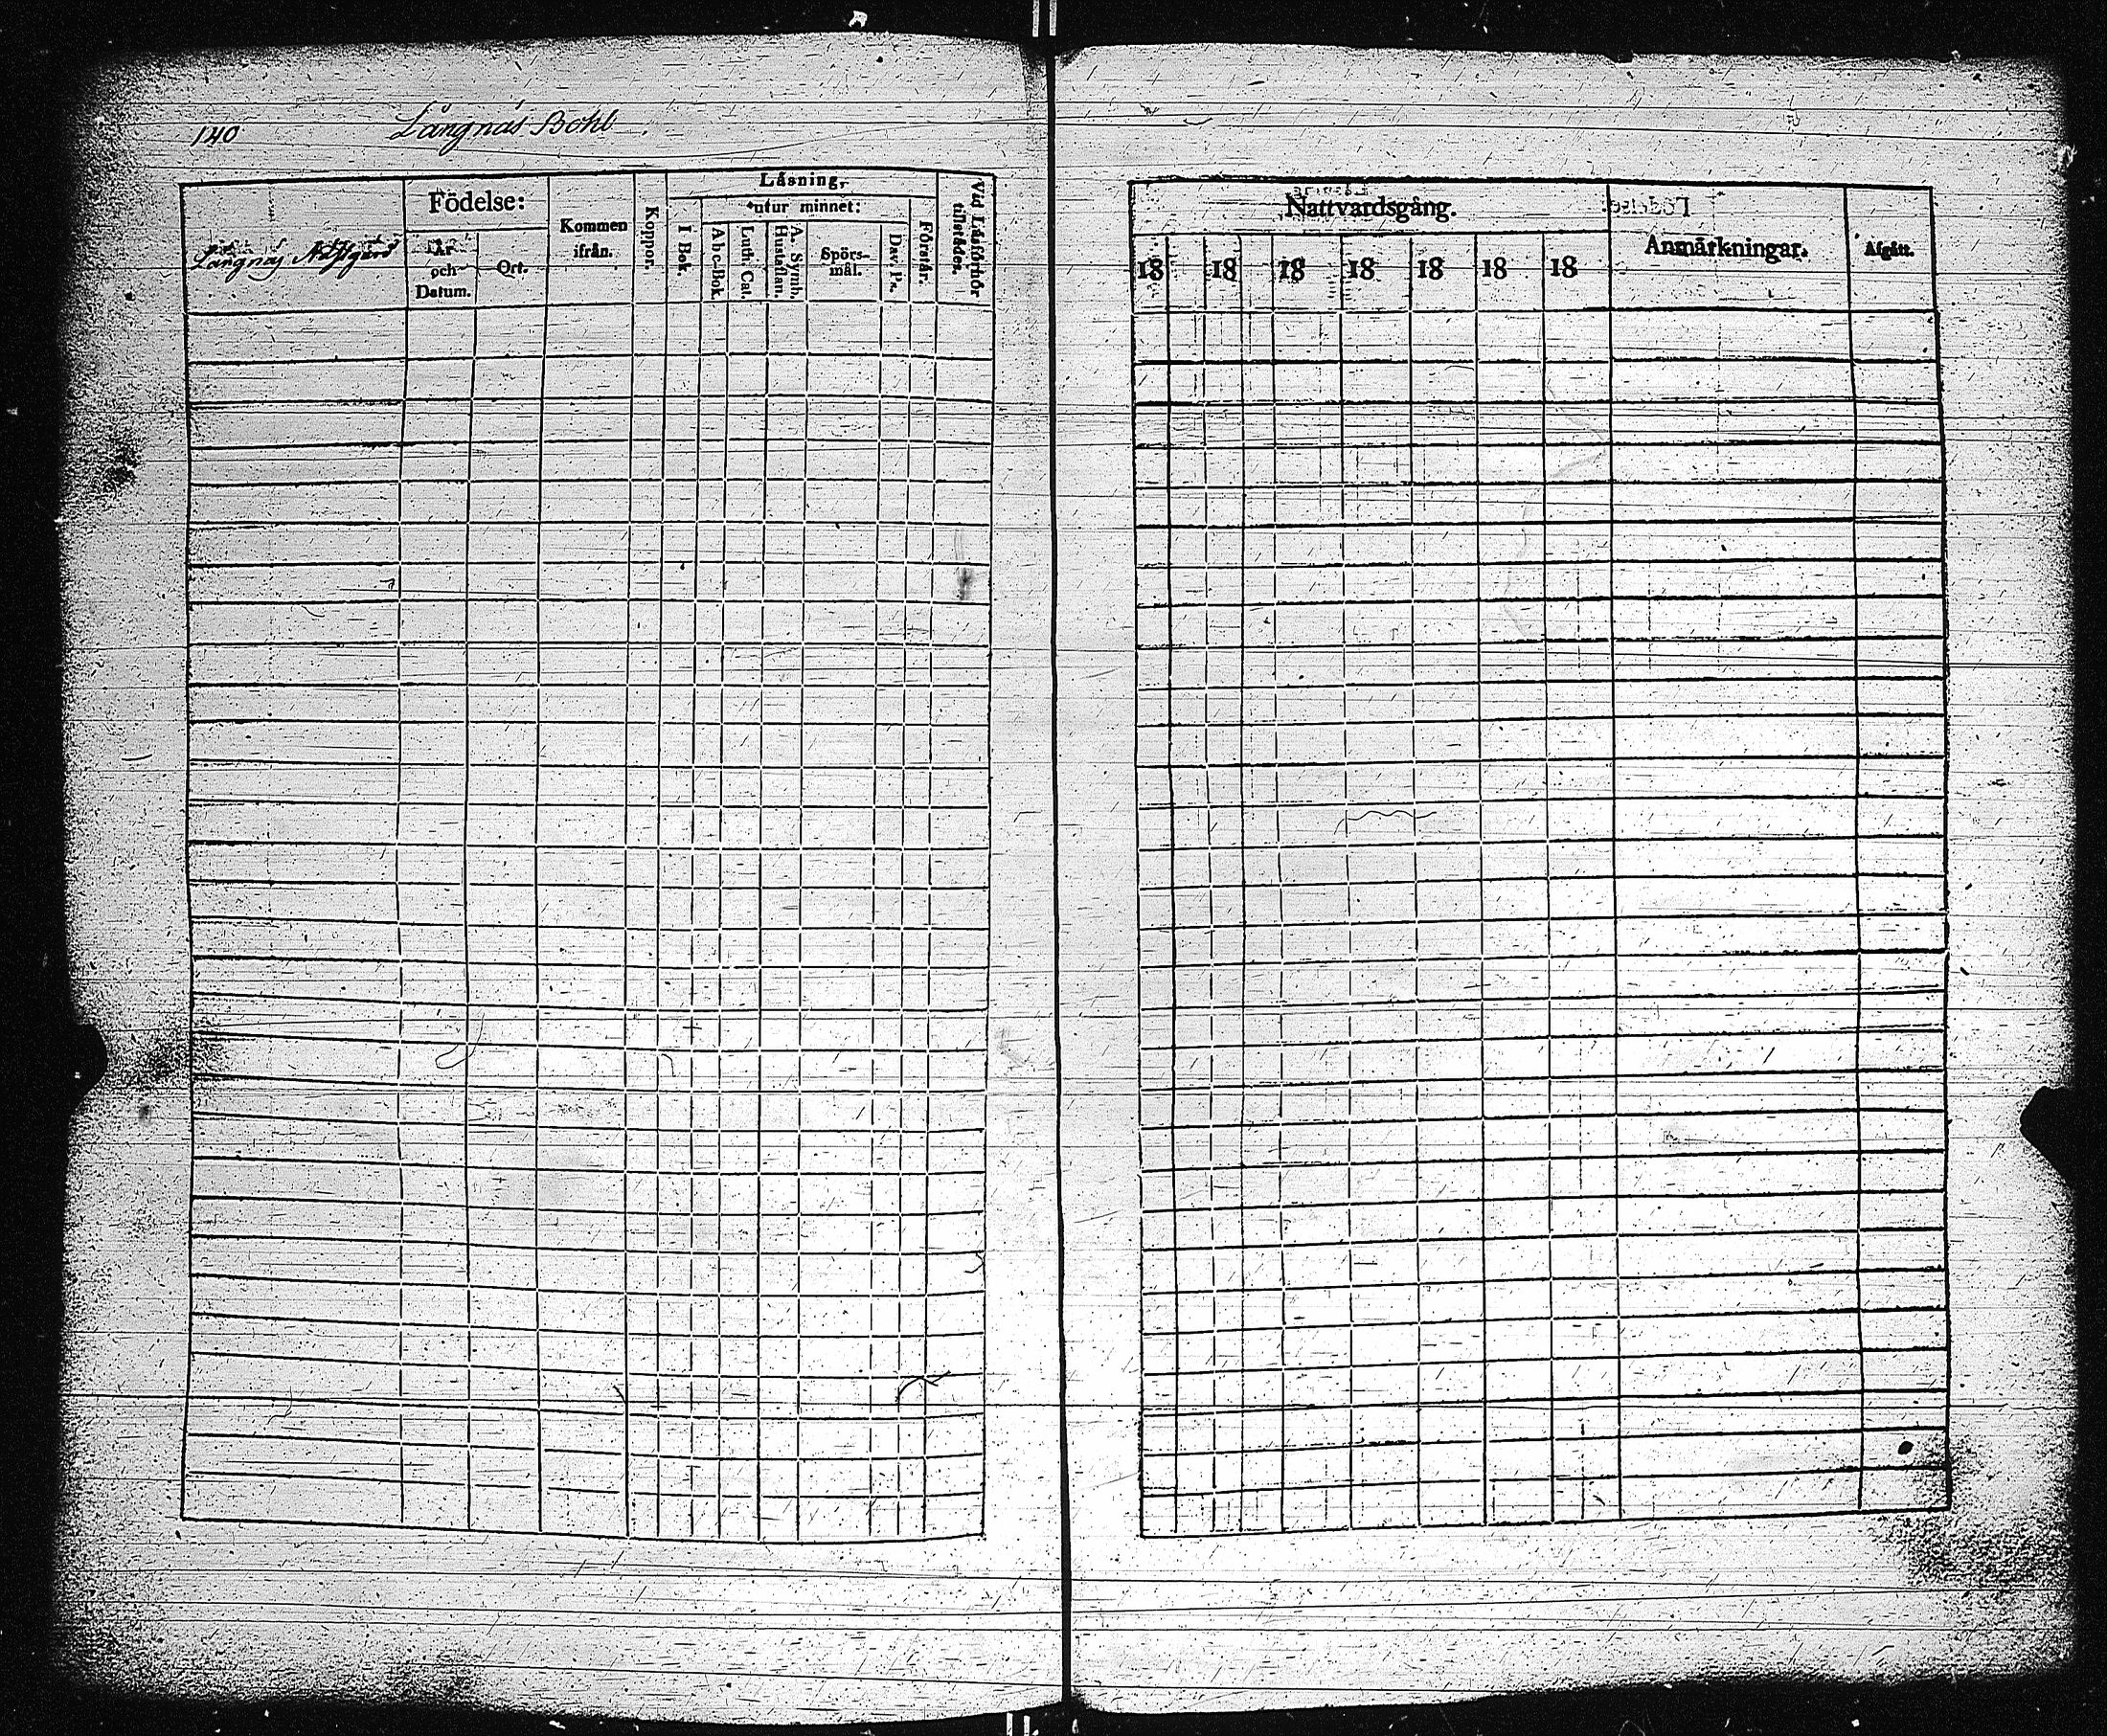 140
Långnäs Bohl
Långnäs
Födelse:
År
och
Datum.
Ort.
Kommen
ifrån.
Koppor.
Läsning,
utur minnet:
I Bok.
Abc-Bok.
Luth. Cat.
A. Symb.
Hustaflan.
Spörs-
mål.
Dav. Ps.
Förstår.
Vid Läsförhör
tillstädes.
Nattvardsgång.
18 18 18 18 18 18 18
Anmärkningar.
Afgått.